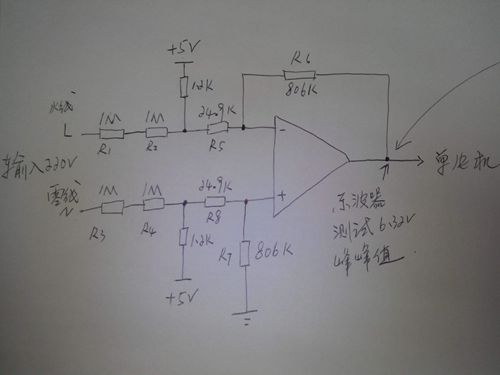 +5V
R6
火线
1M
1M
1.2K
24.9K
806K
L
R1
R2
R5
-
输入220V
单片机
零线
1M
1M
24.9K
+
N
R3
R4
R8
示波器
1.2K
R7
806K
测试6.32V
+5V
峰峰值